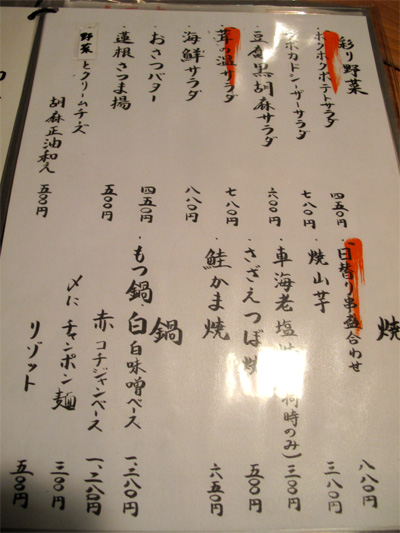 彩り野菜
・ホクホクポテトサラダ 四五〇円
アボカドシーザーサラダ 七八〇円
・豆腐黒胡麻サラダ 六〇〇円
・茸の温サラダ 七八〇円
・海鮮サラダ 八八〇円
・おさつバター 四五〇円
・蓮根さつま揚 五〇〇円
・野菜とクリームチーズ
胡麻正油和え 五〇〇円
焼
・日替り串盛合わせ 八八〇円
・焼山芋 三八〇円
・車海老塩焼 荷時のみ) 三〇〇円
・さざえつぼ焼 五〇〇円
・鮭かま焼 六五〇円
鍋
・もつ鍋 白 白味噌ベース 一、二八〇円
赤 コチジャンベース 一、二八〇円
〆に チャンポン麺 三〇〇円
リゾット 五〇〇円